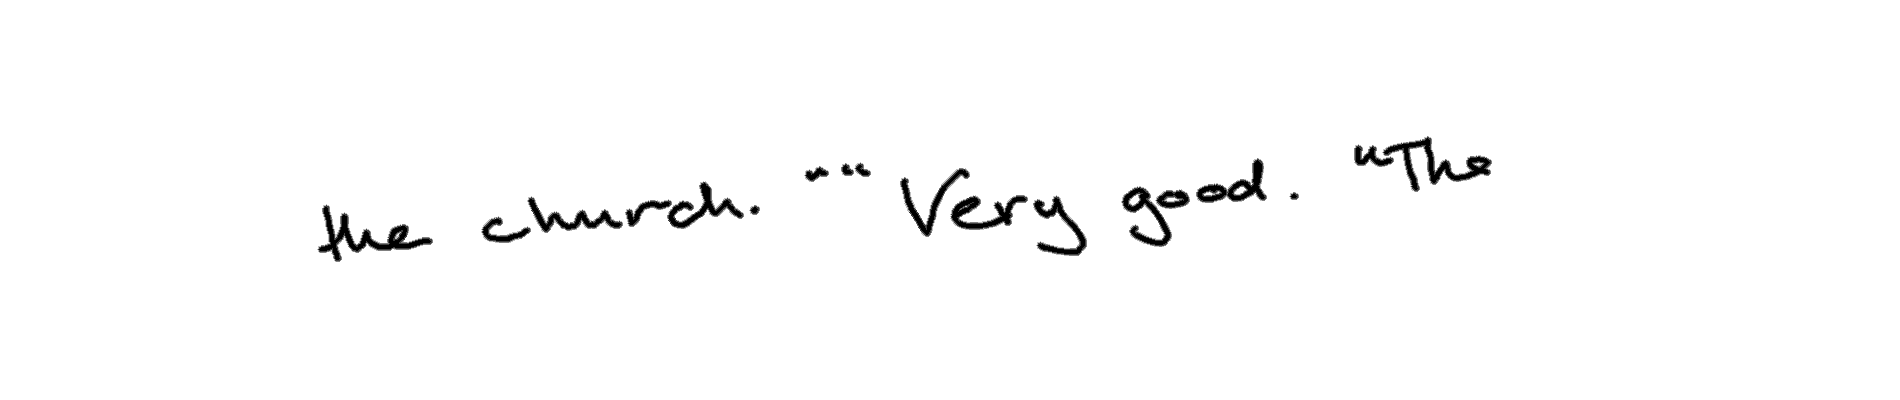 the church. "" Very good. "The